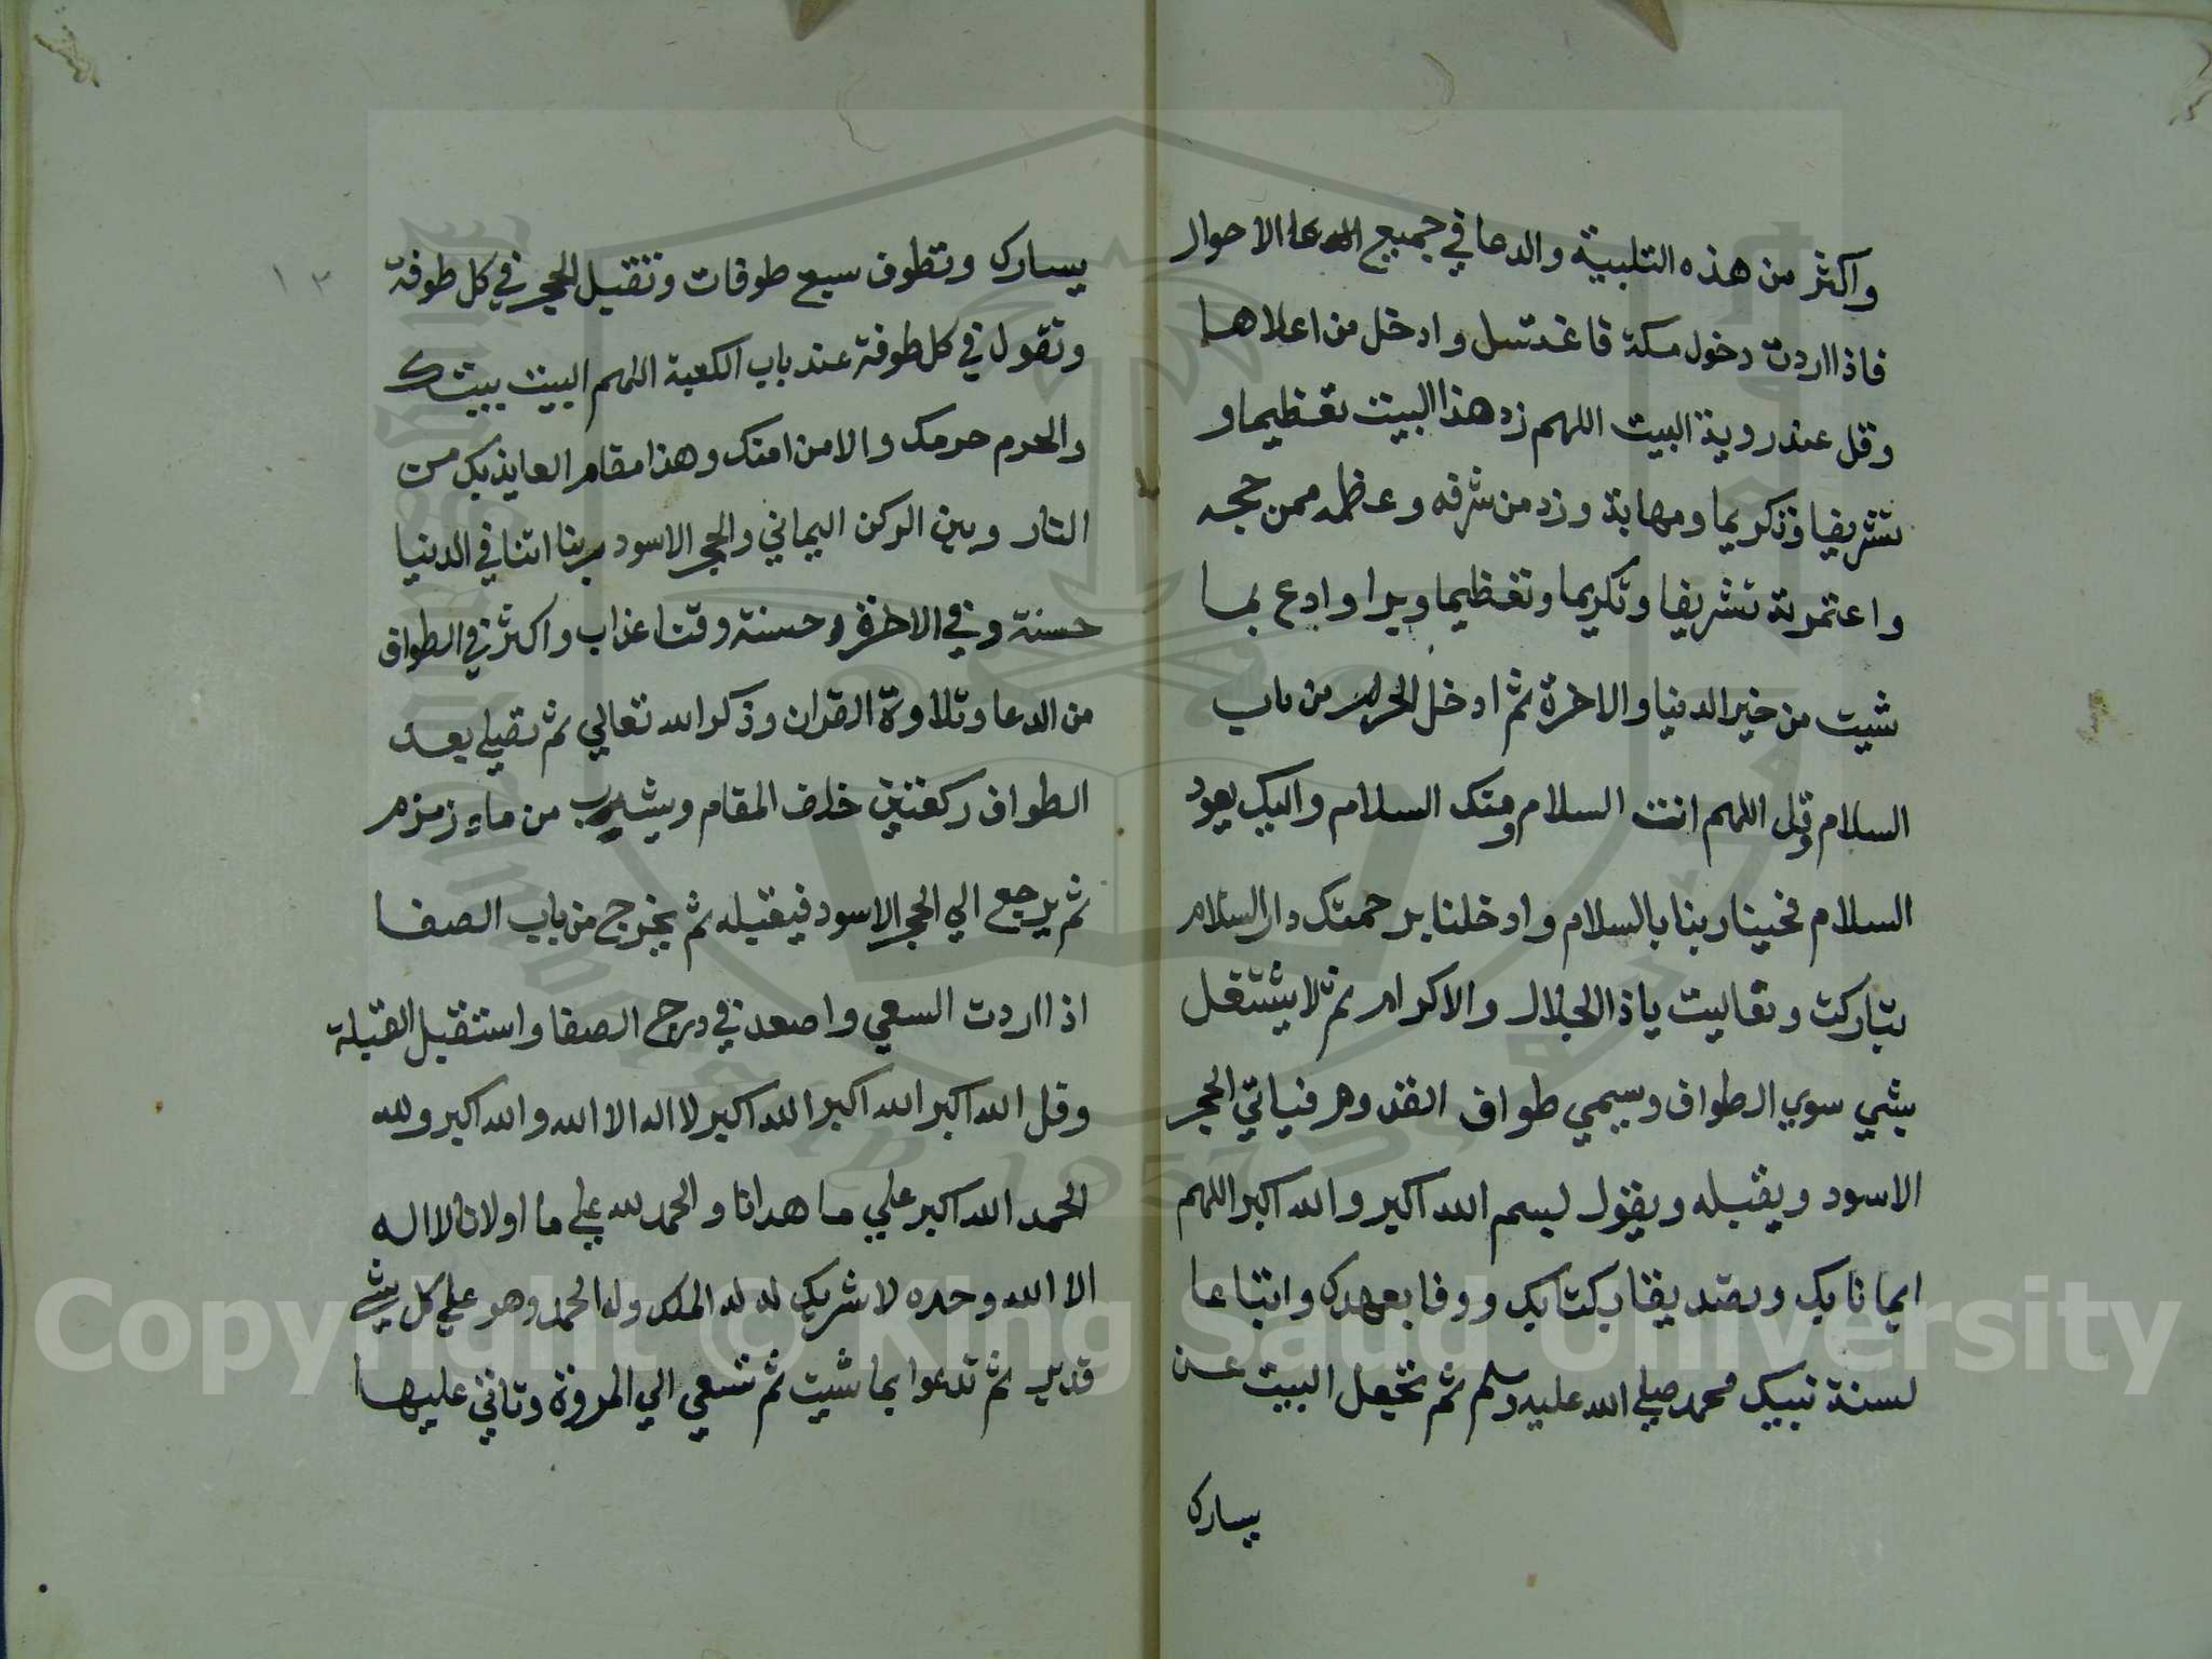 واكثر من هذه التلبية والدعا في جميع الاحوال
فاذا اردت دخول مكة فاغتسل وادخل من اعلاها
وقل عند روية البيت اللهم زد هذا البيت تعظيما و
تشريفا وتكريما ومهابة وزد من شرفه وعظمه ممن حجه
واعتمرته تشريفا وتكريما وتعظيما وبرا وادع بما
شيت من خير الدنيا والاخرة ثم ادخل الحرم من باب
السلام وقل اللهم انت السلام ومنك السلام واليك يعود
السلام فحينا ربنا بالسلام وادخلنا برحمتك دار السلام
تباركت وتعاليت ياذا الجلال والاكرام ثم لا يشتغل
بشي سوي الطواف ويسمي طواف القدوم فياتي الحجر
الاسود ويقبله ويقول بسم الله اكبر والله اكبر اللهم
ايمانا بك وتصديقا بكتابك ووفا بعهدك واتباعا
لسنة نبيك محمد صلي الله عليه وسلم ثم تجعل البيت عن
يسارك
يسارك وتطوف سبع طوفات وتقبل الحجر في كل طوفة
وتقول في كل طوفة عند باب الكعبة اللهم البيت بيتك
والحرم حرمك والامن امنك وهذا مقام العايذ بك من
النار وبين الركن اليماني والحجر الاسود ربنا اتنا في الدنيا
حسنة وفي الاخرة حسنة وقنا عذاب واكثر في الطواف
من الدعا وتلاوة القران وذكر الله تعالي ثم تصلي بعد
الطواف ركعتين خلف المقام ويشرب من ماء زمزم
ثم يرجع الي الحجر الاسود فيقبله ثم يخرج من باب الصفا
اذا اردت السعي واصعد في درج الصفا واستقبل القبلة
وقل الله اكبر الله اكبر الله اكبر لا اله الا الله والله اكبر ولله
الحمد الله اكبر علي ما هدانا والحمد لله علي ما اولانا لا اله
الا الله وحده لا شريك له له الملك وله الحمد وهو علي كل شي
قدير ثم تدعوا بما شيت ثم تسعي الي المروة وتاتي عليها
١٢
Copyright © King Saud University